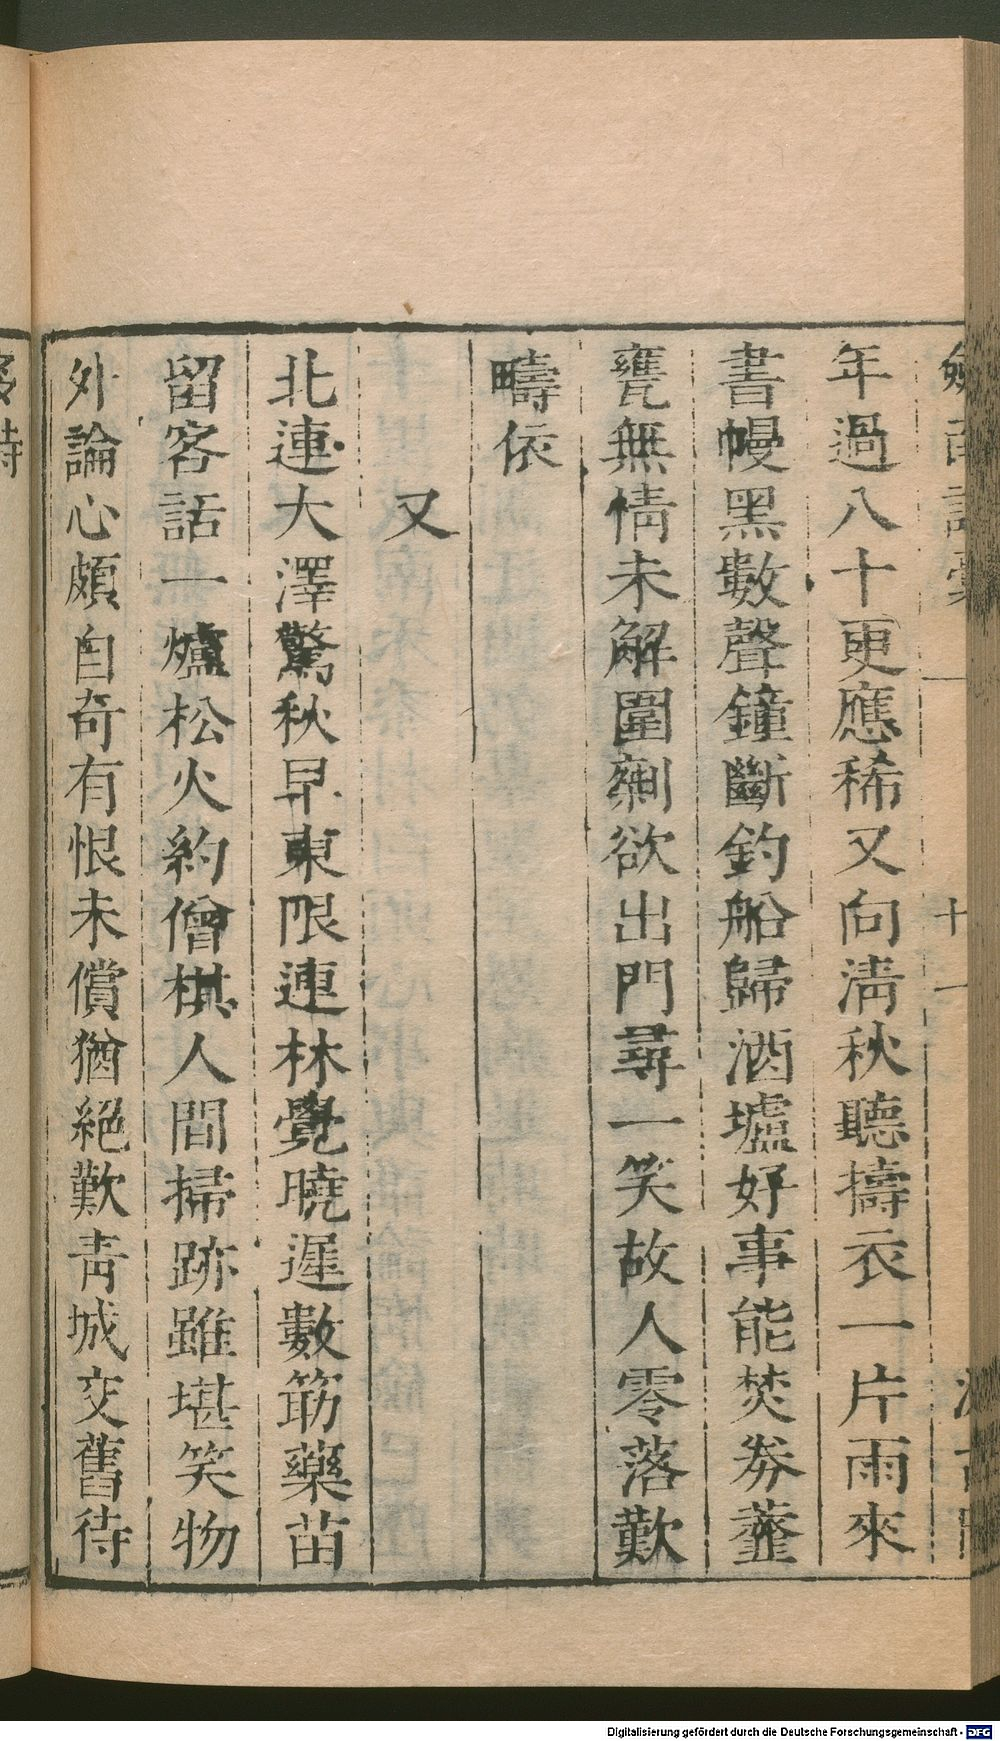 年過八十更應稀又向清秋聽擣衣一片雨來
書幔黑數聲鐘斷釣船歸酒壚好事能焚券虀
甕無情未解圍剩欲出門尋一笑故人零落歎
疇依
又
北連大澤驚秋早東限連林覺曉遲數筯藥苗
留客話一爐松火約僧棋人間掃跡雖堪笑物
外論心頗自奇有恨未償猶絕歎青城交舊待
Digitalisierung gefördert durch die Deutsche Forschungsgemeinschaft - DFG